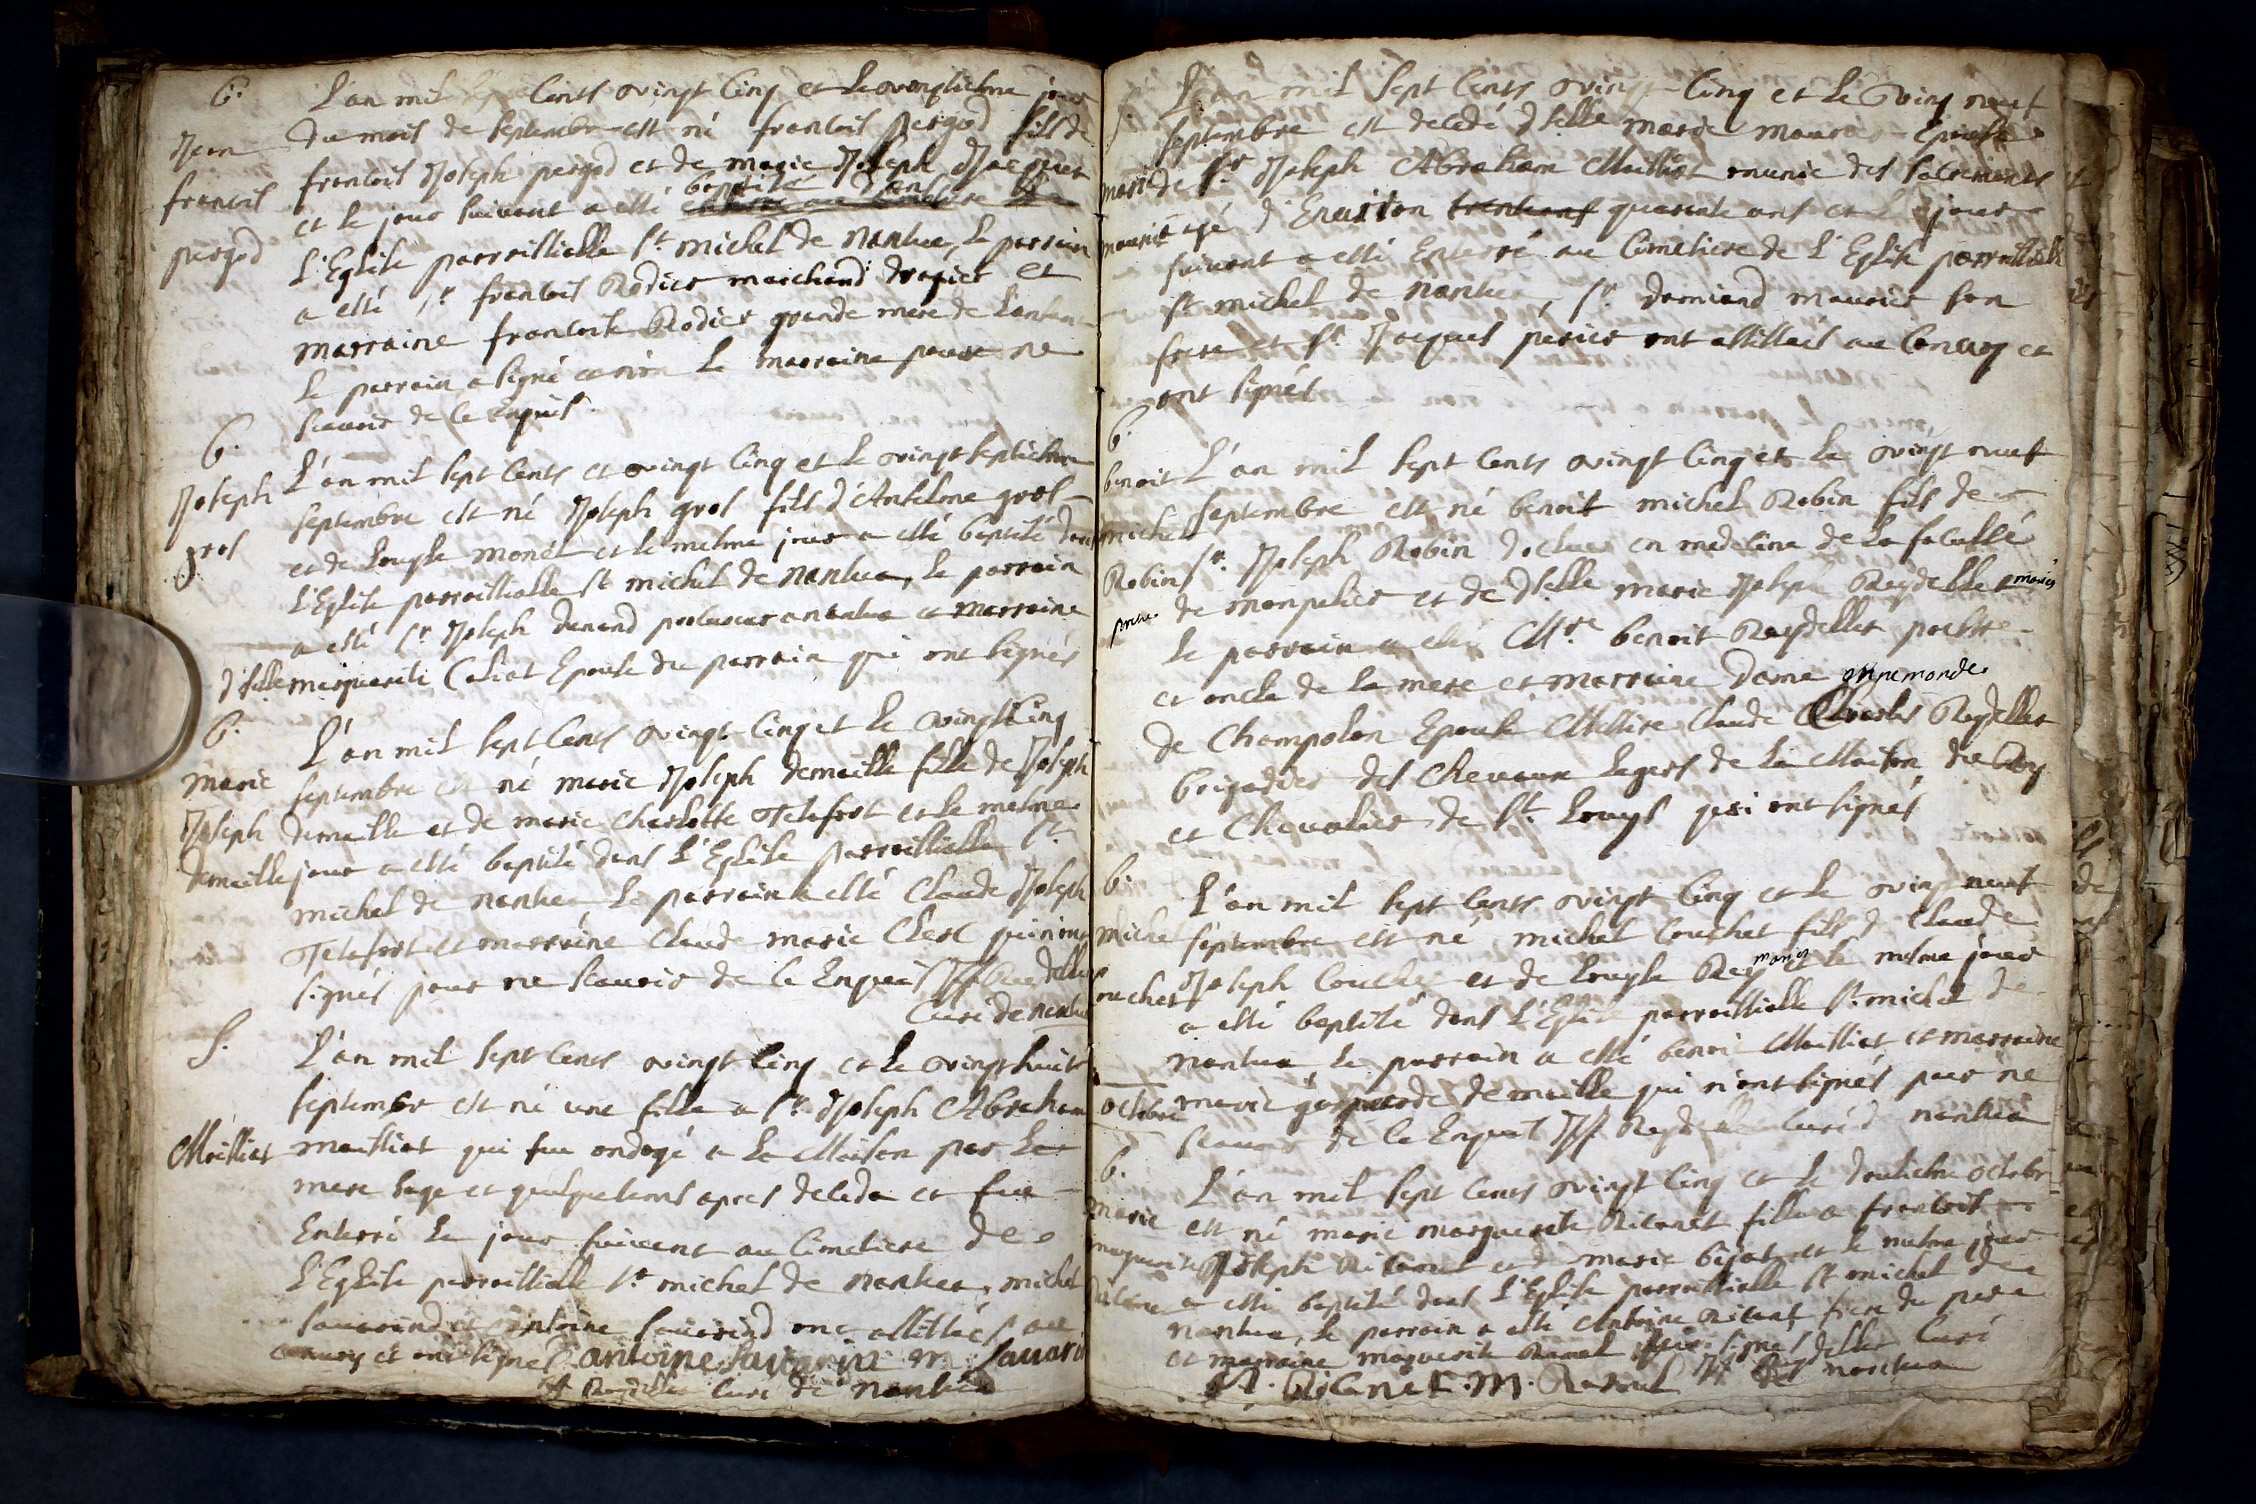 B.
Jean
francois
pergod
L'an mil sept Cents vingt Cinq et Le vingtiesme jour
du mois de septembre est né francois pergod fils de
francois Joseph pergod et de marie Joseph Jacquet
et le jour suivant a esté baptisé dans
L'Eglise parroissialle st michel de nantua, Le parrain
a esté sr francois Rodier marchand drapier et
marraine francoise Rodier grande mere de L'enfant
Le parrain a signé et non La marraine pour ne
scavoir de ce Enquis
B.
Joseph
gros
L'an mil sept Cents et vingt Cinq et Le vingt septiesme
septembre est né Joseph gros fils d'Anselme gros
et de Louyse monet et le mesme jour a esté baptisé dans
L'Eglise parroissialle st michel de nantua, Le parrain
a esté sr Joseph durand procureur a nantua et marraine
dselle marguerite Caliat Epouse du parrain qui ont signés
B.
marie
Joseph
demeille
L'an mil sept Cents vingt Cinq et Le vingt Cinq
septembre est né marie Joseph demeille fille de Joseph
demeille et de marie Charlotte Tetafort et Le mesme
jour a esté baptisé dans L'Eglise parroissialle st
michel de nantua Le parrain a esté Claude Joseph
Tetafort et marraine Claude marie Clerc qui n'ont
signés pour ne scavoir de ce Enquis JF Reydellet
Curé de nantua
S.
Maillias
L'an mil sept Cents vingt Cinq et Le vingt huit
septembre est né une fille a sr Joseph Abraham
mailliat qui fut ondoyé a La Maison par La
mere sage et quelque tems apres deceda et fut
Enterré Le jour suivant au Cimetiere de
L'Eglise parroissialle st michel de nantua, michel
Savarind et Antoine Savarind ont assistés au
Convoy et ont signés antoine Savarin m Savarin
JF Reydellet Curé de nantua
S.
marie
maurier
L'an mil sept Cents vingt Cinq et Le Vingt neuf
septembre est decedé dselle marie maurier Epouse
de sr Joseph Abraham Mailliat munie des sacrements
agé d'Environ quarante ans et Le jour
suivant a esté Enterré au Cimetiere de L'Eglise parroissialle
st michel de nantua, sr dominid maurier son
frere et sr Jacques perier ont assistés au Convoy et
ont signés
B.
benoit
michel
Robin
L'an mil sept Cents vingt Cinq et Le vingt neuf
septembre est né benoit michel Robin fils de
sr Joseph Robin docteur en medecine de La faculté
de monpelier et de dselle marie Joseph Reydellet mariés
Le parrain a esté Mre benoit Reydellet prestre
et oncle de La mere et marraine Dame annemonde
de Champolon Epouse Messire Claude Charles Reydellet
brigadier des Chevaux Legers de La Maison du Roy
et Chevalier de st Louys qui ont signés
B.
michel
couchet
L'an mil sept Cents vingt Cinq et Le vingt neuf
septembre est né michel Couchet fils d Claude
Joseph Couchet et de Louyse Rey mariés et Le mesme jour
a esté baptisé dans L'Eglise parroissialle st michel de
nantua, Le parrain a esté benoi Mailliat et marraine
marie gasparde demeille qui n'ont signés pour ne
scavoir de ce Enquis JF Reydellet Curé d nantua
octobre
B.
marie
marguerite
L'an mil sept Cents vingt Cinq et Le deuxiesme octobre
est né marie marguerite Ricanet fille a francois
Joseph Ricanet et de marie bijot et le mesme jour
a esté baptisé dans L'Eglise parroissialle st michel de
nantua, Le parrain a esté Antoine Ricanet frere du pere
et marraine marguerite Ravet qui signés JF Reydellet Curé
A. Ricanet. M. Ravet de nantua